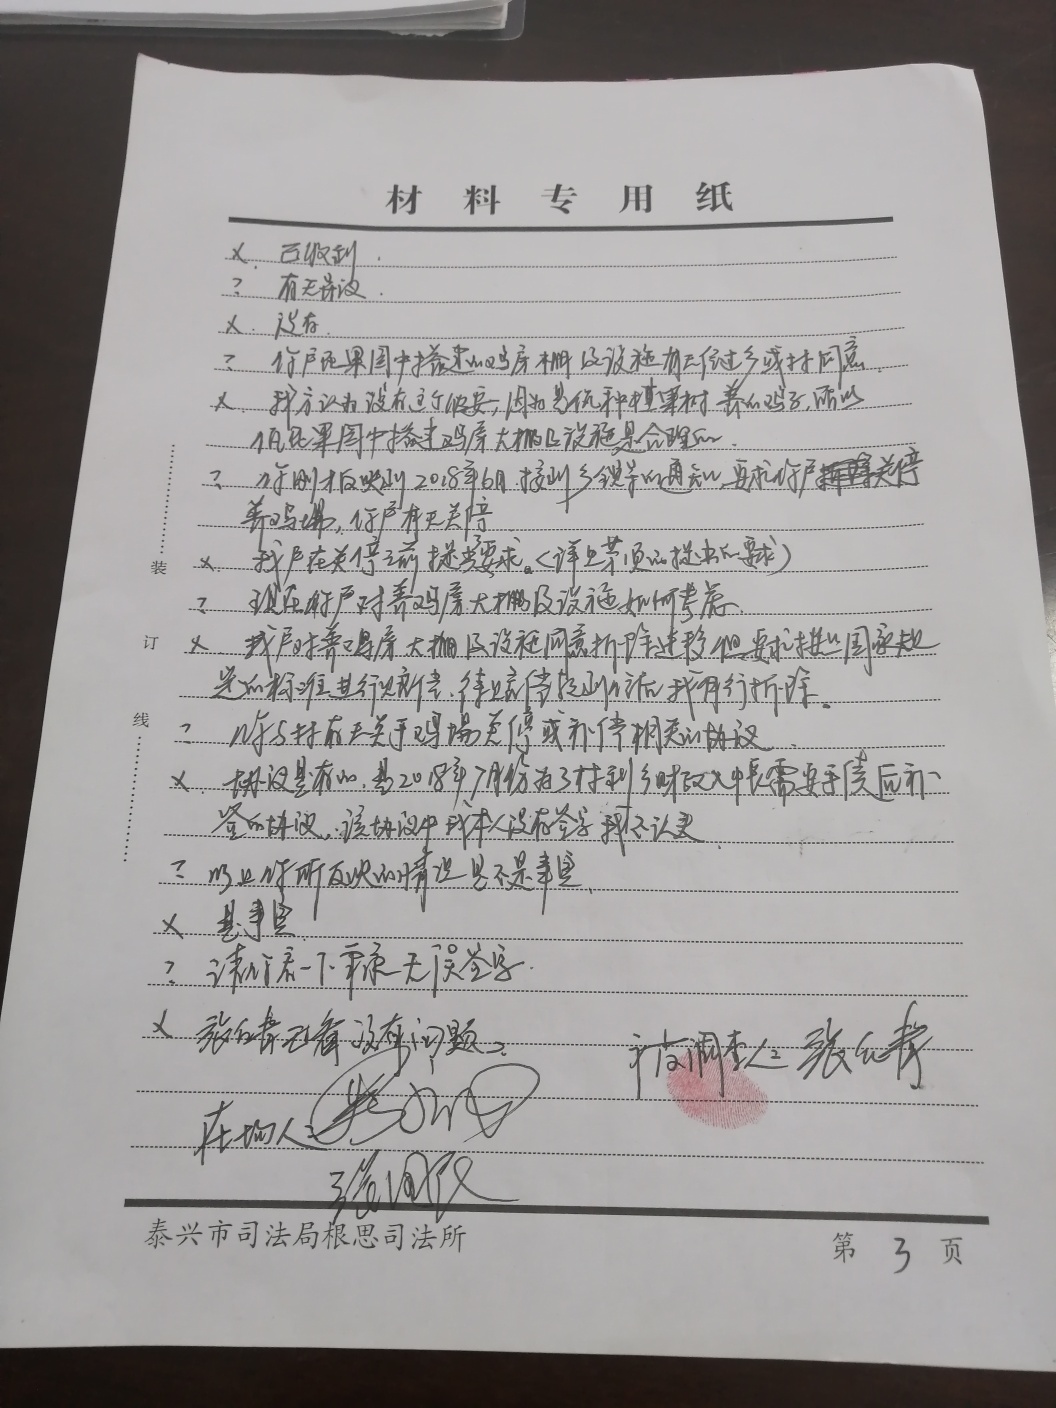 材料专用纸
×. 已收到.
? 有无异议.
×. 没有.
? 你户在果园中搭建的鸡房大棚及设施有无经过乡或村同意.
×. 我方认为没有这个必要,因为是优种植果树 养的鸡子,所以
但在果园中搭建鸡房大棚及设施是合理的.
? 你刚才反映到2018年6月接到乡镇等的通知,要求你户关停
养鸡场,你户有无关停.
× 我户在关停之前提出要求。(详见第页的提出的要求)
? 现在你户对养鸡房大棚及设施如何考虑.
×. 我户对养鸡房大棚及设施同意拆除迁移但要求按照国家规
定的标准进行赔偿,待赔偿款到位后我自行拆除。
? 你与村有无关于鸡场关停或补偿相关的协议.
×. 协议是有的,是2018年7月份为了村到乡财政需要于债后补
签的协议,该协议中我本人没有签字我不认定.
? 以上你所反映的情况是不是事实.
× 是事实.
? 请你看一下无误签字.
× 没有问题.
被调查人:
在场人:
装
订
线
泰兴市司法局根思司法所
第 3 页